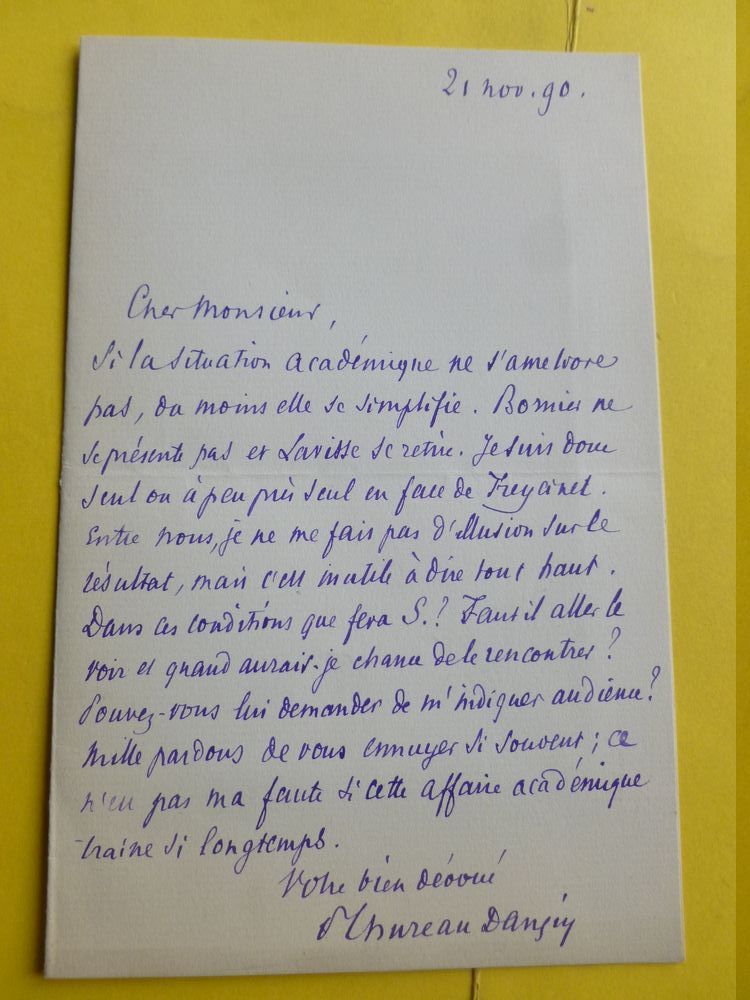 21 nov. 90.
Cher Monsieur,
Si la situation académique ne s'améliore
pas, du moins elle se simplifie. Bornier ne
se présente pas et Lavisse se retire. Je suis donc
seul ou à peu près seul en face de Freycinet.
Entre nous, je ne me fais pas d'illusion sur le
résultat, mais c'est inutile à dire tout haut.
Dans ces conditions que fera S.? Faut il aller le
voir et quand aurais-je chance de le rencontrer?
Pouvez-vous lui demander de m'indiquer audience?
Mille pardons de vous ennuyer si souvent; ce
n'est pas ma faute si cette affaire académique
traine si longtemps.
Votre bien dévoué
P Thureau Dangin